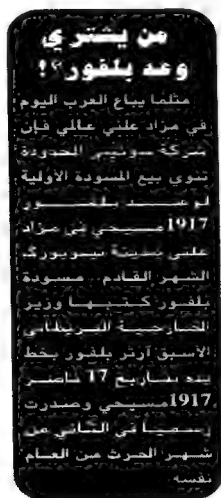 من يشتري
وعد بلفور؟!
مثلما يباع العرب اليوم
في مزاد علني عالمي فإن
شركة سوذبيز المحدودة
تنوي بيع المسودة الأولية
لوعد بلفور
1917 مسيحي في مزاد
علني بمدينة نيويورك
الشهر القادم. مسودة
بلفور كتبها وزير
الخارجية البريطاني
الأسبق آرثر بلفور بخط
يده بتاريخ 17 ناصر
1917 مسيحي وصدرت
رسمياً في الثاني من
شهر الحرث من العام
نفسه